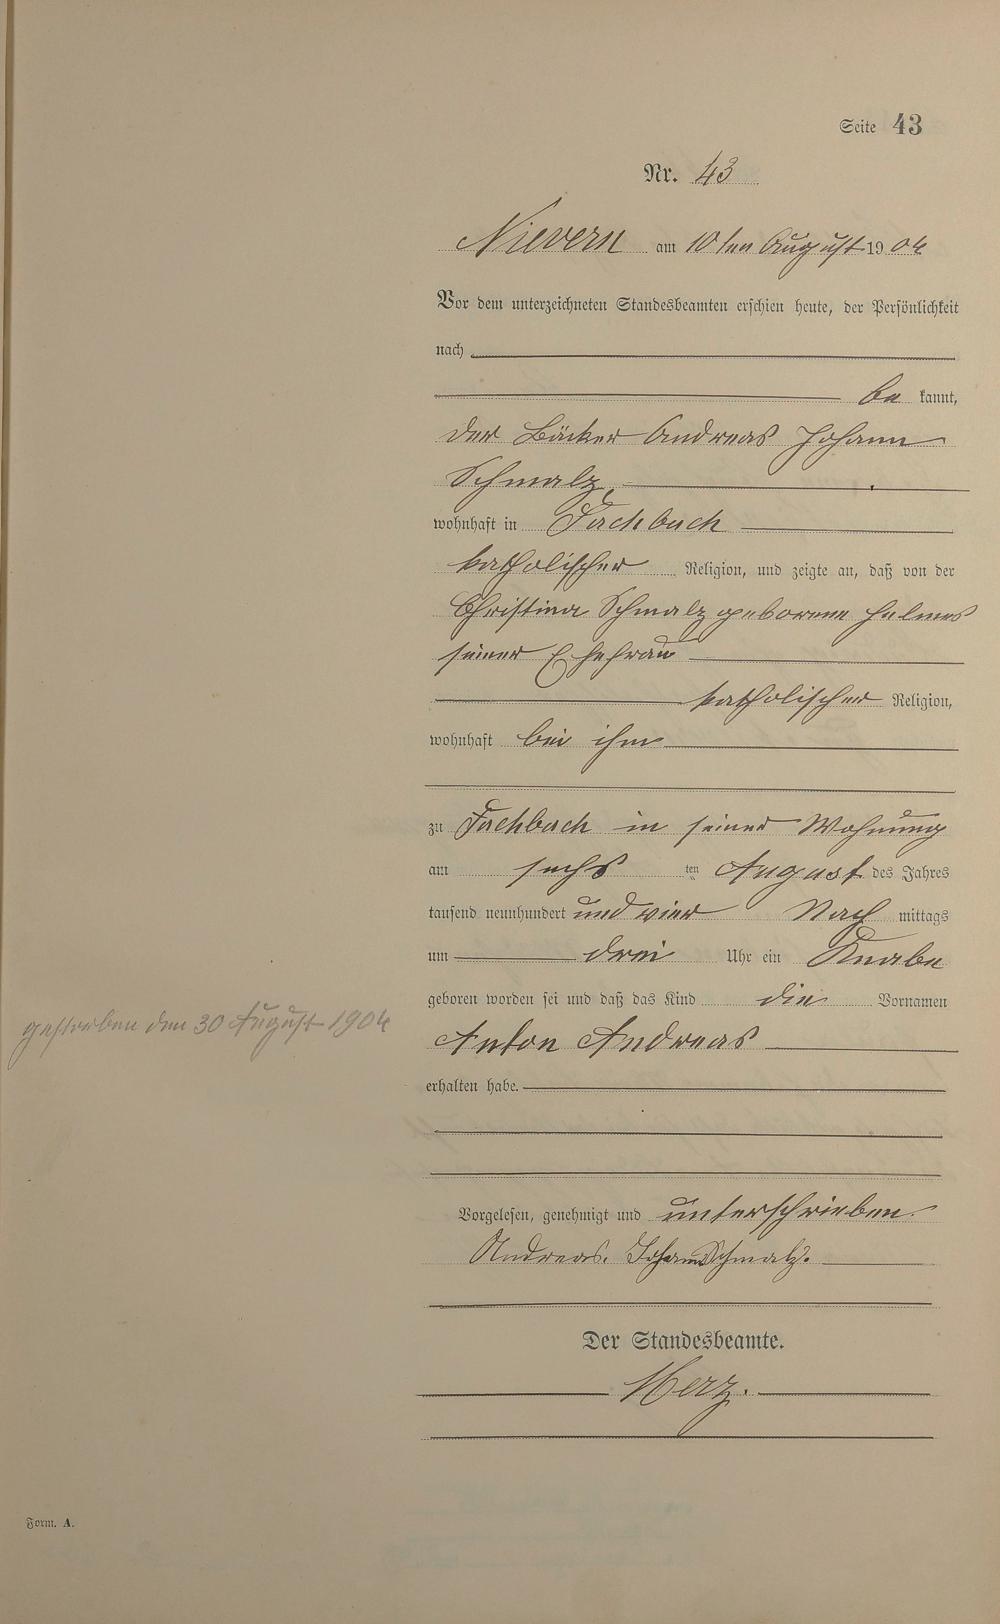 Seite 43
Nr. 43
Nievern am 10ten August 1904
Vor dem unterzeichneten Standesbeamten erschien heute, der Persönlichkeit
nach
bekannt,
der Bäcker Andreas Johann
Schmalz,
wohnhaft in Fachbach
katholischer Religion, und zeigte an, daß von der
Christina Schmalz geborene Helmes
seiner Ehefrau
katholischer Religion,
wohnhaft bei ihm
zu Fachbach in seiner Wohnung
am sechsten August des Jahres
tausend neunhundert und vier Nachmittags
um drei Uhr ein Knabe
geboren worden sei und daß das Kind die Vornamen
gestorben den 30 August 1904
Anton Andreas
erhalten habe.
Vorgelesen, genehmigt und unterschrieben.
Andreas. Johann Schmalz.
Der Standesbeamte.
Merz.
Form. A.